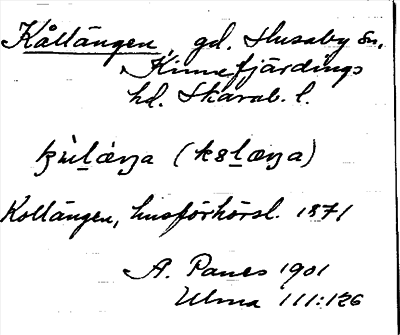 Kållängen, gd. Husaby sn,
Kinnefjärdings
hd. Skarab. l.
(kȣl̠æŋa)
Kollängen, husförhörsl. 1871
A. Panes 1901
Ulma 111:126